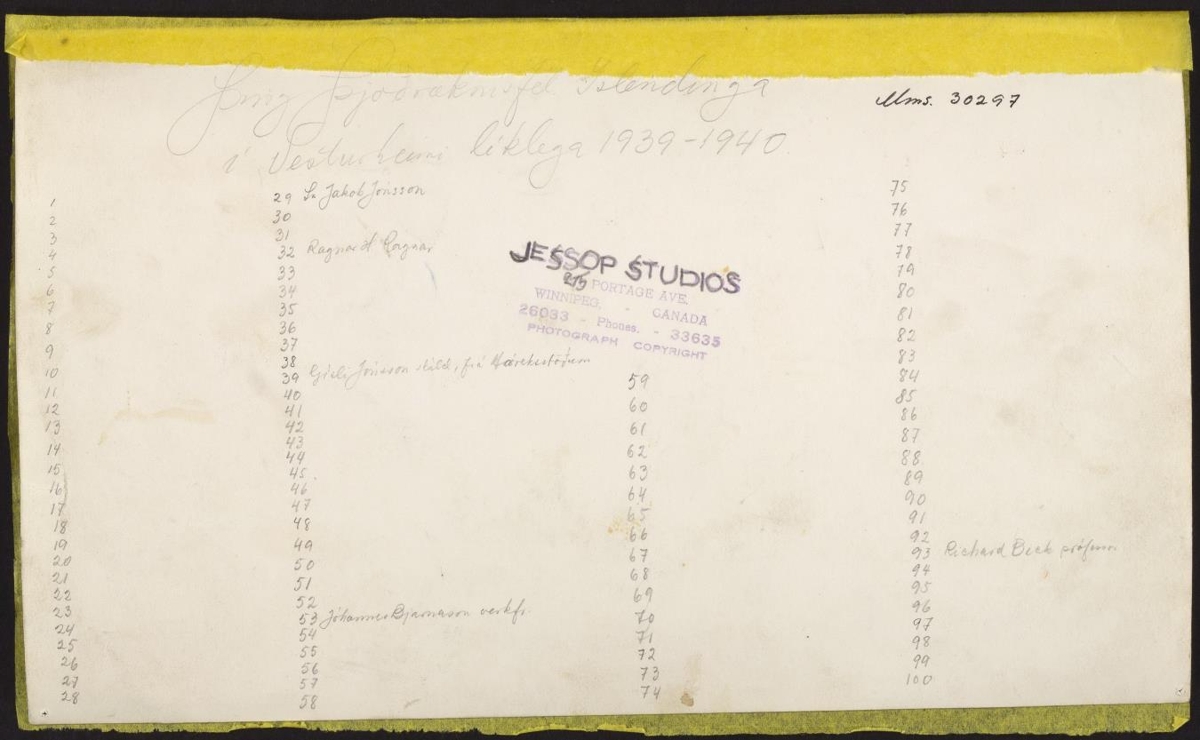 Þing Þjóðræknisfél Íslendinga
í Vesturheimi líklega 1939-1940
Mms. 30297
1
2
3
4
5
6
7
8
9
10
11
12
13
14
15
16
17
18
19
20
21
22
23
24
25
26
27
28
29 Sr Jakob Jónsson
30
31
32 Ragnar H Ragnar
33
34
35
36
37
38
39 Gísli Jónsson skáld, frá
40
41
42
43
44
45
46
47
48
49
50
51
52
53 Jóhannes Bjarnason verkfr.
54
55
56
57
58
JESSOP STUDIOS
PORTAGE AVE.
WINNIPEG, - CANADA
26033 - Phones. - 33635
PHOTOGRAPH COPYRIGHT
59
60
61
62
63
64
65
66
67
68
69
70
71
72
73
74
75
76
77
78
79
80
81
82
83
84
85
86
87
88
89
90
91
92
93 Richard Beck prófessor
94
95
96
97
98
99
100